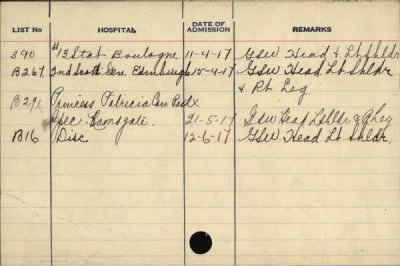 LIST No HOSPITAL DATE OF ADMISSION REMARKS
390 #13 Stat. Boulogne 11-4-17 GSW Head & Lt Shldr
B267 2nd Scott. Gen. Edinburgh 15-4-17 GSW Head Lt Shldr
& Rt Leg
B291 Princess Patricia Can Red X
Spec. Ramsgate. 21-5-17 GSW Head Lt Shldr & R Leg
B16 Disc 12-6-17 GSW Head Lt Shldr.